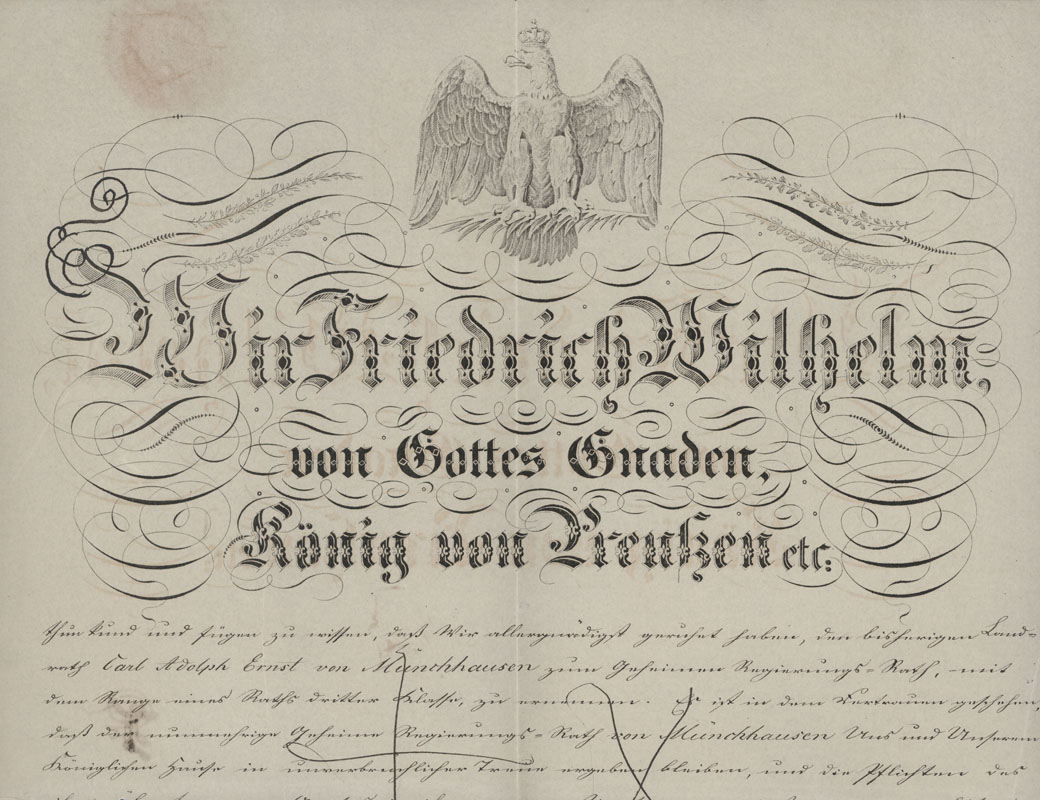 Wir Friedrich Wilhelm,
von Gottes Gnaden,
König von Preußen etc:
thun kund und fügen zu wissen, daß Wir allergnädigst geruhet haben, den bisherigen Land=
rath Carl Adolph Ernst von Münchhausen zum Geheimen Regierungs=Rath, mit
dem Range eines Raths dritter Klasse, zu ernennen. Es ist in dem Vertrauen geschehen,
daß der nunmehrige Geheime Regierungs=Rath von Münchhausen Uns und Unserem
Königlichen Hause in unverbrüchlicher Treue ergeben bleiben, und die Pflichten des